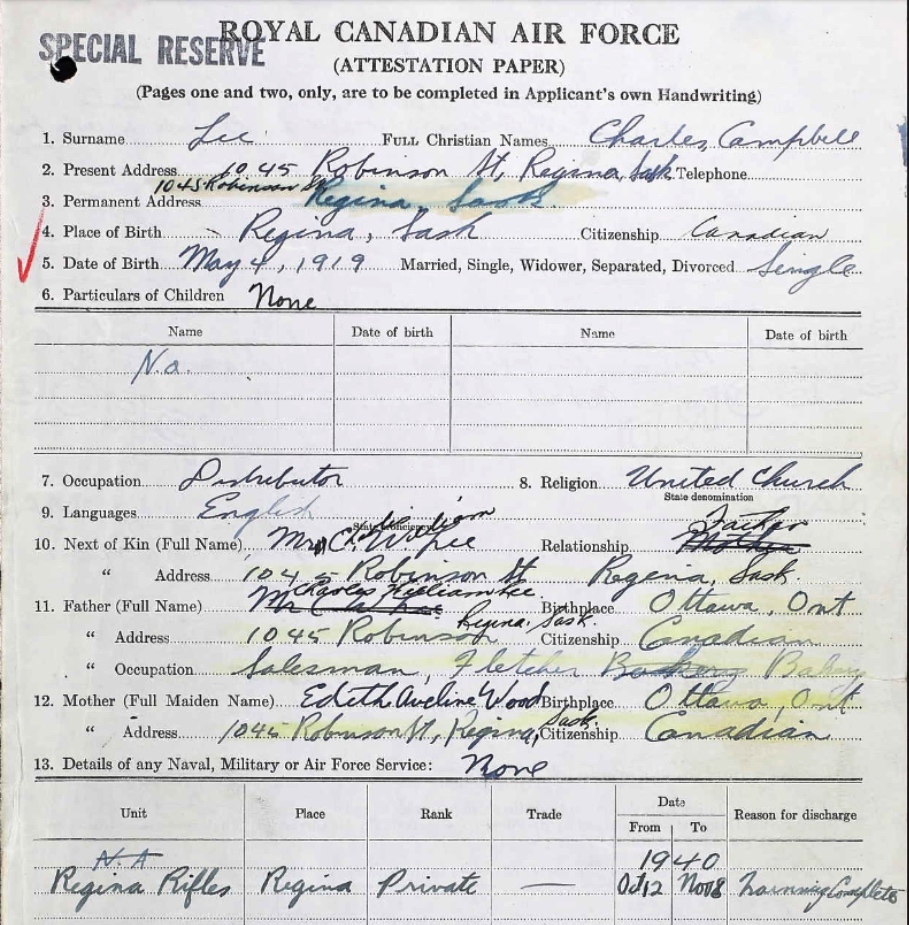 SPECIAL RESERVE
ROYAL CANADIAN AIR FORCE
(ATTESTATION PAPER)
(Pages one and two, only, are to be completed in Applicant's own Handwriting)
1. Surname Lee FULL CHRISTIAN NAMES Charles, Campbell
2. Present Address 1045 Robinson St, Regina, Sask Telephone
1045 Robinson St
3. Permanent Address Regina, Sask.
4. Place of Birth Regina, Sask Citizenship Canadian
5. Date of Birth May 4, 1919 Married, Single, Widower, Separated, Divorced Single
6. Particulars of Children None
Name Date of birth Name Date of birth
N.a.
7. Occupation Distributor 8. Religion United Church
State denomination
9. Languages English
State proficiency
William Father
10. Next of Kin (Full Name) Mr. C. W. Lee Relationship Mother
" Address 1045 Robinson St Regina, Sask.
Charles William Lee
11. Father (Full Name) Mr C W Lee Birthplace Ottawa, Ont
Regina, Sask.
" Address 1045 Robinson Citizenship Canadian
" Occupation Salesman, Fletcher Bakery
12. Mother (Full Maiden Name) Edith Aveline Wood Birthplace Ottawa, Ont
" Address 1045 Robinson St, Regina, Sask. Citizenship Canadian
13. Details of any Naval, Military or Air Force Service: None
Unit Place Rank Trade Date Reason for discharge
From To
N.A 1940
Regina Rifles Regina Private — Oct 12 Nov 8 Trainning Complete